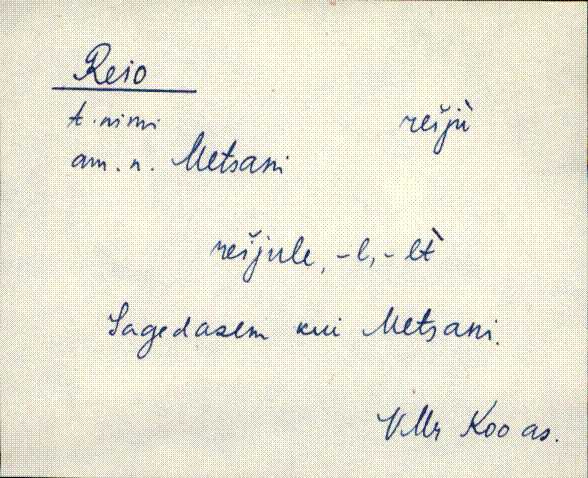 Reio
t. nimi reiju̇̀
am. n. Metsani
reijule, -l, -lt̀
Sagedasem kui Metsani.
VMr Koo as.